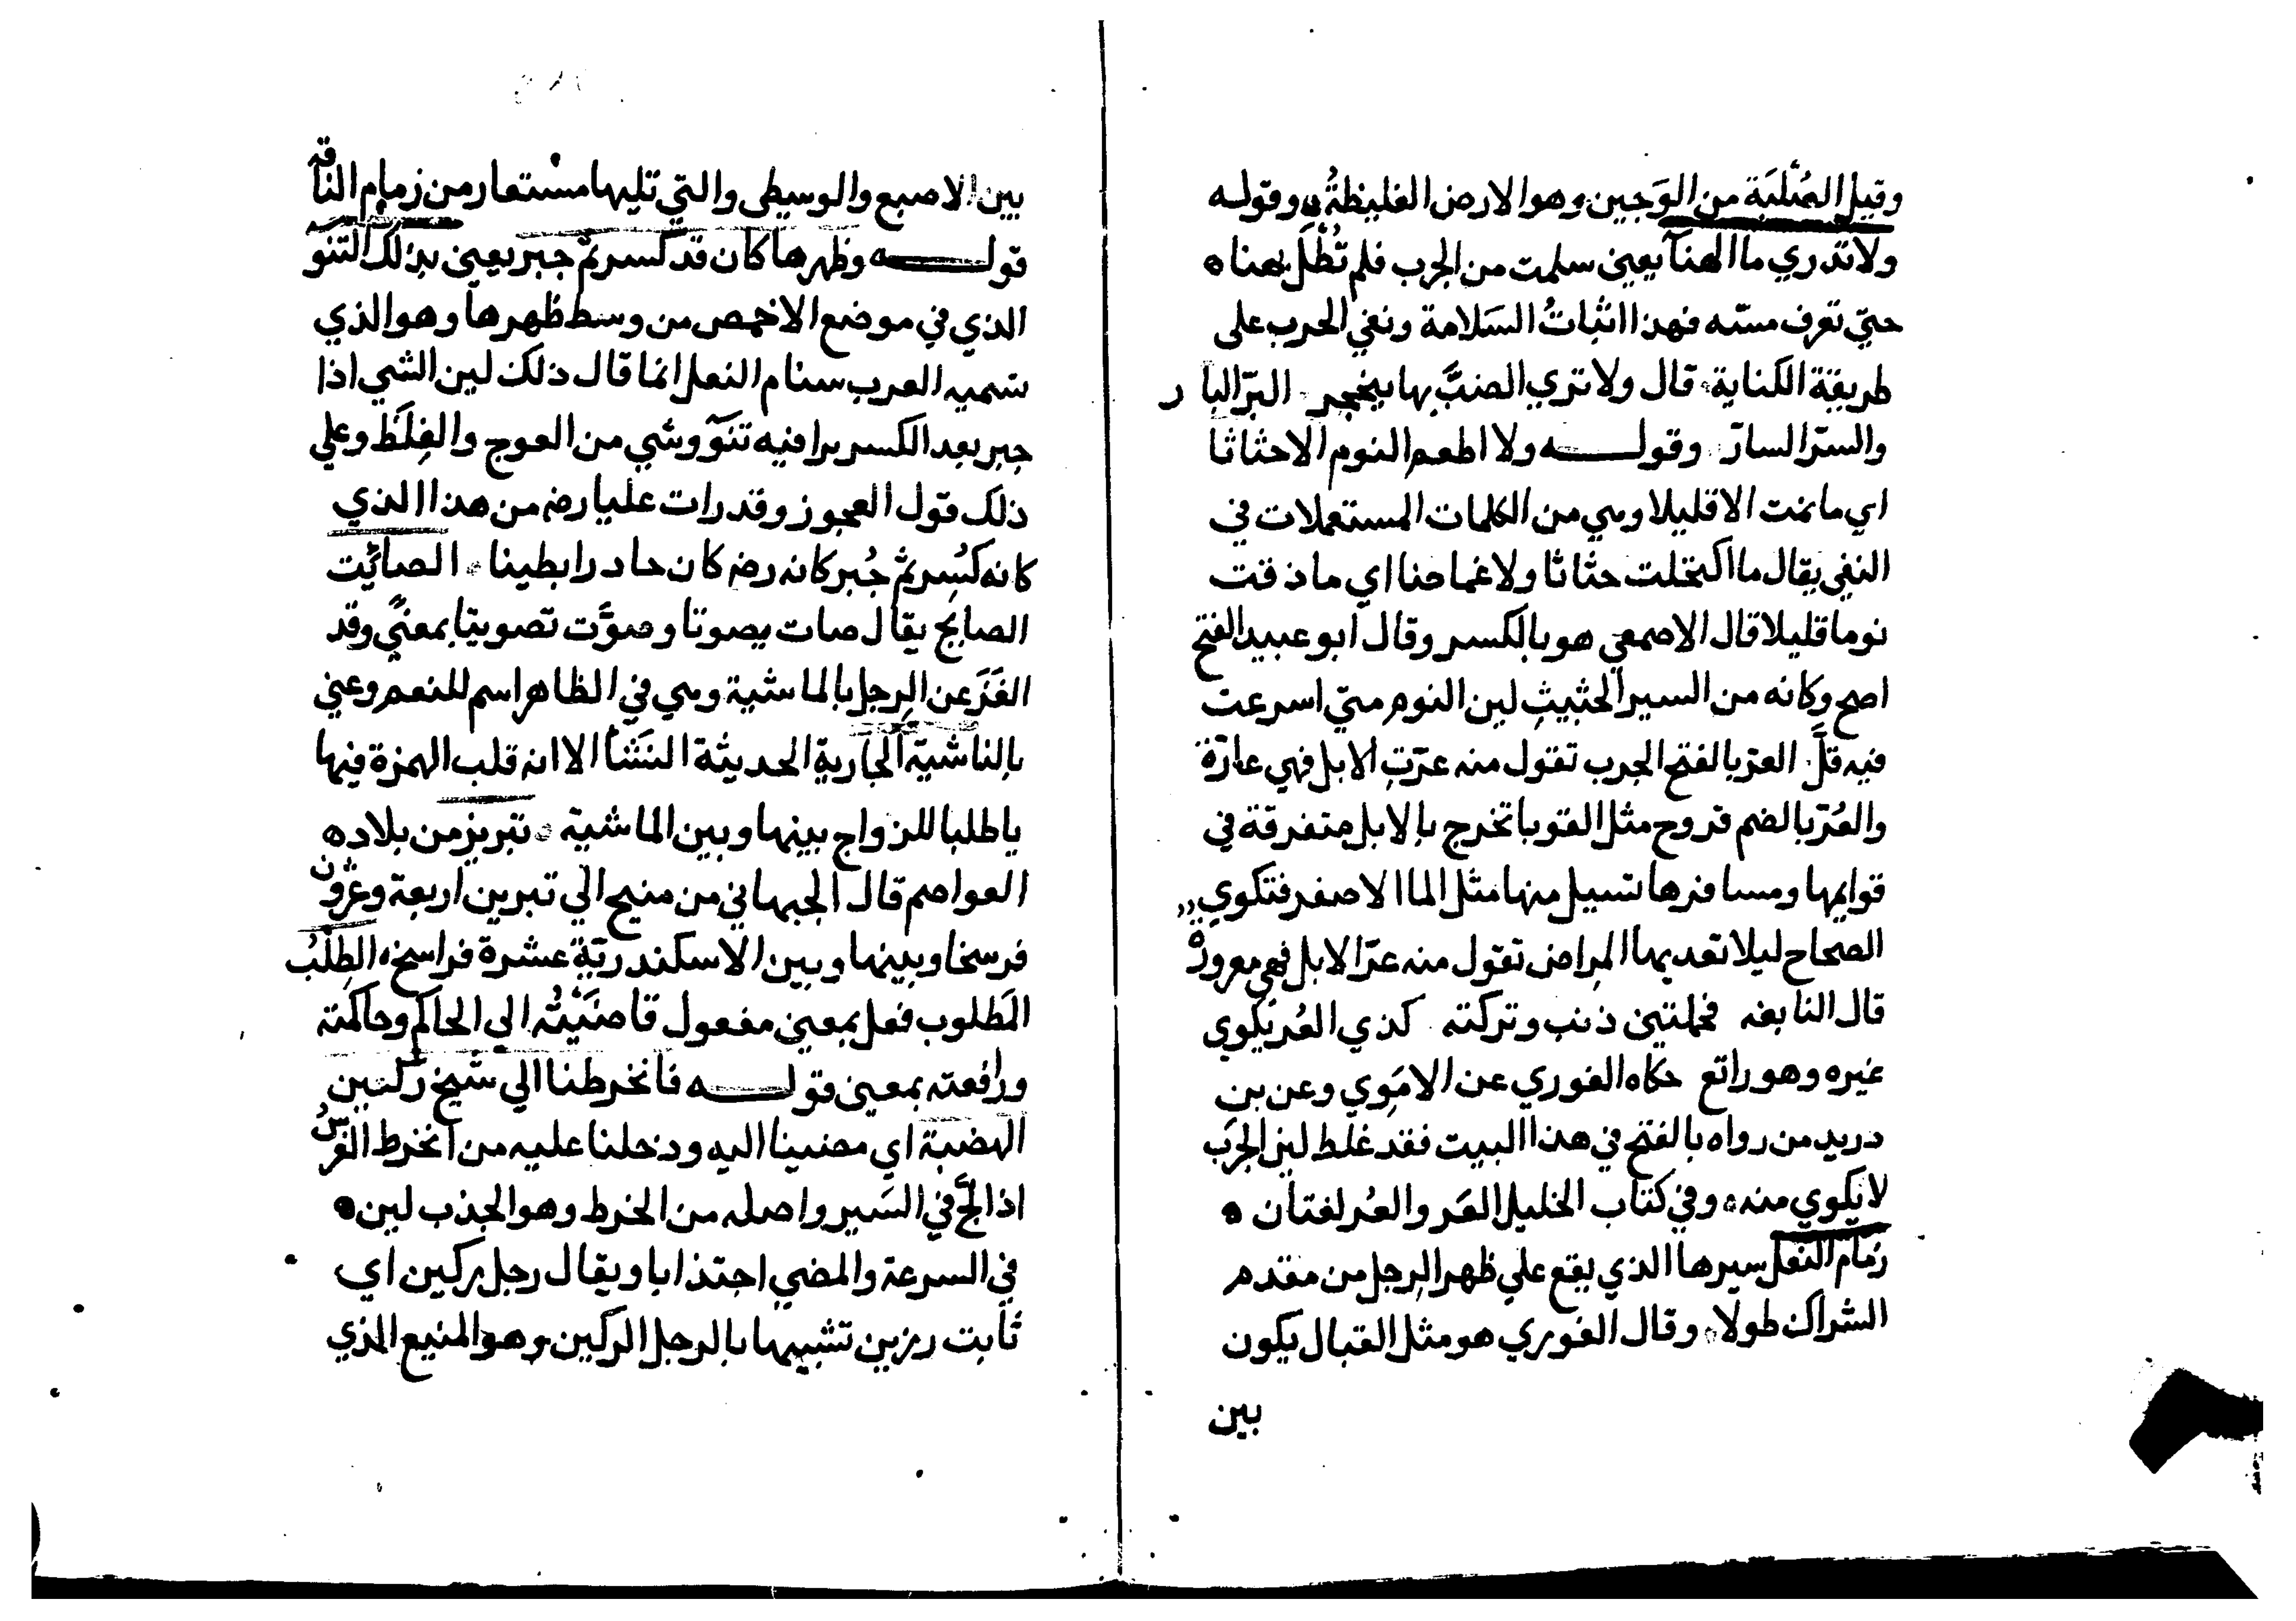 وقيل الصُلْبَة من الوَجين وهو الارض الغليظةُ وقوله
ولا تدري ما الهنآ يعين سلمت من الجرب فلم تُطْلَ بهناه
حتي تعرف مسّه فهذا اثباتُ السَلامة ونفي الجرب على
طريقة الكناية قال ولا تري الضبَّ بها ينجحر البرّ البار
والسرّ السارّ وقولـــه ولا اطعم النوم الا حثاثا
اي ما نمت الا قليلا وهي من الكلمات المستعملات في
النفي يقال ما اكتحلت حثاثا ولا غماضا اي ما ذقت
نوما قليلا قال الاصمعي هو بالكسر وقال ابو عبيد الفتح
اصح وكانه من السير الحثيثِ لين النوم متي اسرعت
فيه قلَّ العرّ بالفتح الجرب تقول منه عرّتِ الابل فهي عارّة
والعُرّ بالضم قروح مثل القوبا تخرج بالابل متفرقة في
قوايمها ومسافرها تسيل منها مثل الما الاصفر فتكوي
الصحاح ليلا تعديها المراض تقول منه عرّ الابل فهي معرورة
قال النابغه فحملتين ذنب وتركته كذي العُر يكوي
غيره وهو راتع حكاه الغوري عن الامَوِي وعن بن
دريد من رواه بالفتح في هذا البيت فقد غلط لين الجرَب
لا يكوي منه وفي كتاب الخليل العَر والعُر لغتان ه
زمام النعل سيرها الذي يقع علي ظهر الرجل من مقدم
الشراك طولا وقال الغوري هو مثل القبال يكون
بين
بين الاصبع والوسطى والتي تليها مستعار من زمام الناقه
قولـــه وظهرها كان قد كسر ثمّ جبر يعني بذلك التنَو
الذي في موضع الاخمص من وسط ظهرها وهو الذي
تسميه العرب سنام النعل انما قال ذلك لين الشي اذا
جبر بعد الكسر برا فيه تنوّ وشي من العوج والغِلَظ وعلي
ذلك قول العجوز وقد رات عليا رضه من هذا الذي
كانه كُسِر ثمّ جُبر كانه رضه كان حادرا بطينا الصائت
الصايح يقال صات يصوتا وصوَّت تصويتا بمعنًي وقد
الغَزَ عن الرجل بالماشية وهي في الظاهر اسم للنعم وعني
بالناشية الجارية الحديثة النَشْأ الا انه قلب الهمزة فيها
يا طلبا للزواج بينها وبين الماشية تبريز من بلاده
العواصم قال الجبهاني من منبج الي تبرين اربعة وعشرون
فرسخا وبينها وبين الاسكندريّة عشرة فراسخ الطِلْبُ
المَطلوب فعل بمعني مفعول قاضَيْتُه الي الحاكم وحاكمته
ورافعته بمعني قولـــه فانخرطنا الي شيخ ركين
الهضبة اي مضينا اليه ودخلنا عليه من انخرط الفرسُ
اذا لجَّ في السَير واصله من الخرط وهو الجذب لين ه
في السرعة والمضي اجتذابا ويقال رجل ركين اي
ثابت رزين تشبيها بالرجل الركين وهو المنيع الذي